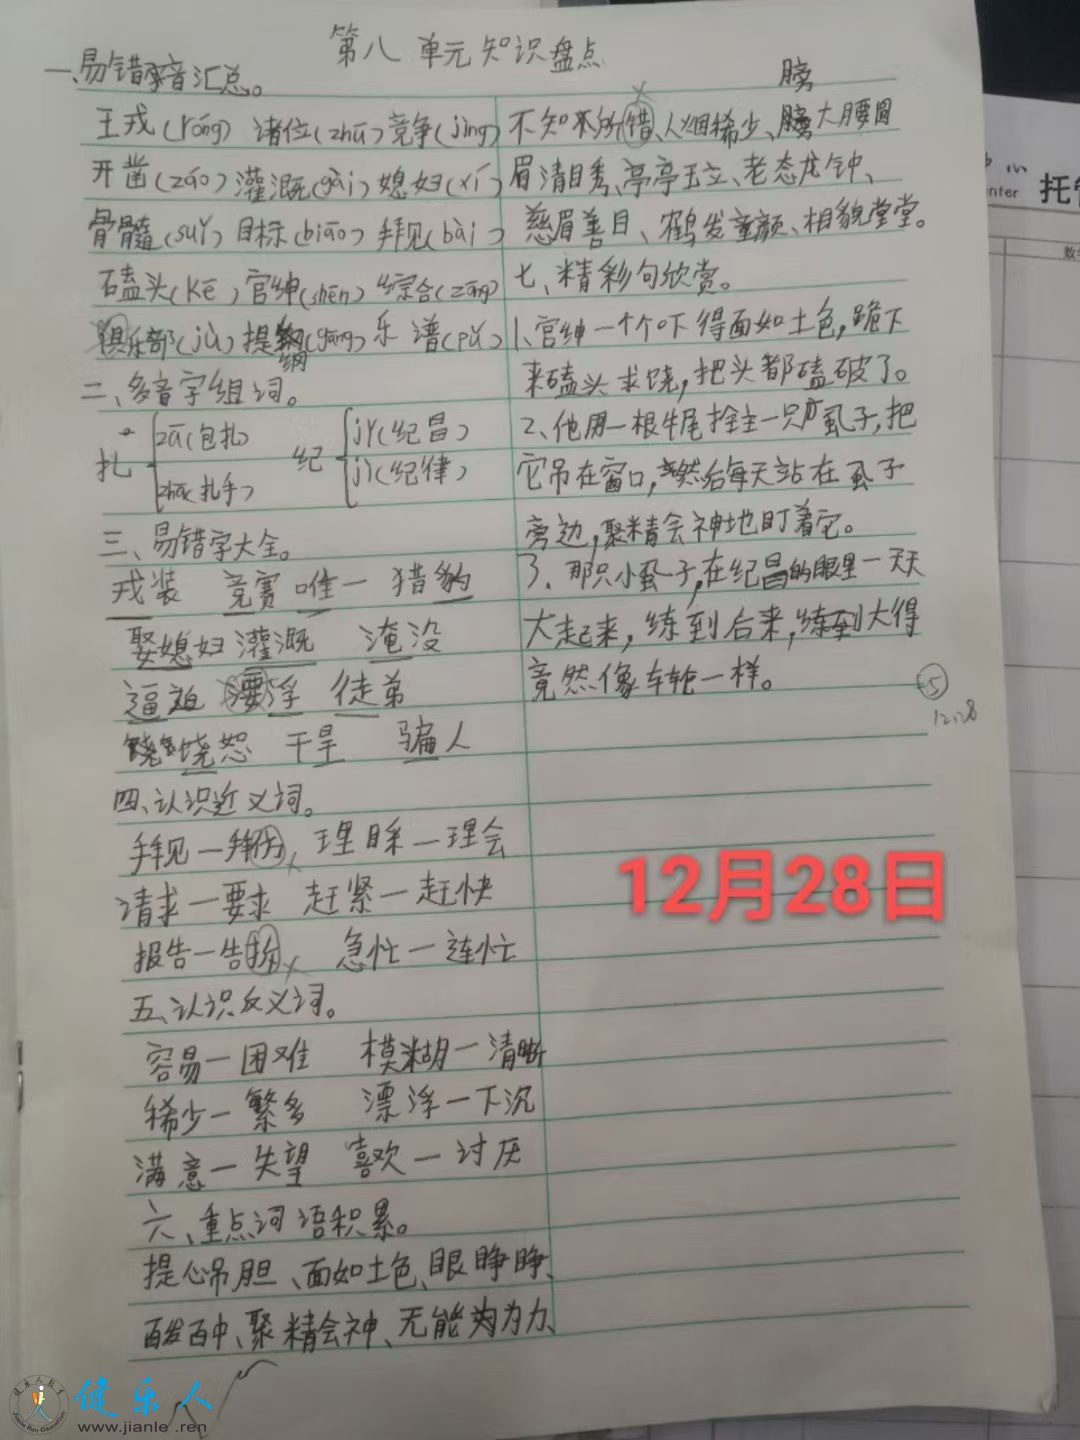 第八单元知识盘点
一、易错字音汇总。
王戎(róng) 诸位(zhū) 竞争(jìng)
开凿(záo) 灌溉(gài) 媳妇(xí)
骨髓(suǐ) 目标(biāo) 拜见(bài)
磕头(kē) 官绅(shēn) 综合(zōng)
俱乐部(jù) 提纲(gāng) 乐谱(pǔ)
二、多音字组词。
扎 zā(包扎) 纪 jǐ(纪昌)
zhā(扎手) jì(纪律)
三、易错字大全。
戎装 竞赛 唯一 猎豹
娶媳妇 灌溉 淹没
逼迫 漂浮 徒弟
饶恕 干旱 骗人
四、认识近义词。
拜见一拜 理睬一理会
请求一要求 赶紧一赶快
报告一告 急忙一连忙
五、认识反义词。
容易一困难 模糊一清晰
稀少一繁多 漂浮一下沉
满意一失望 喜欢一讨厌
六、重点词语积累。
提心吊胆、面如土色、眼睁睁、
百发百中、聚精会神、无能为力、
膀
不知不所错、人烟稀少、膀大腰圆
眉清目秀、亭亭玉立、老态龙钟、
慈眉善目、鹤发童颜、相貌堂堂。
七、精彩句欣赏。
1、官绅一个个吓得面如土色,跪下
来磕头求饶,把头都磕破了。
2、他用一根牛尾拴主一只虱子,把
它吊在窗口,然后每天站在虱子
旁边,聚精会神地盯着它。
3.那只小虱子,在纪昌的眼里一天天
大起来,练到后来,练到大得
竟然像车轮一样。
-5
12.28
12月28日
托
数
健乐人
www.jianle.ren